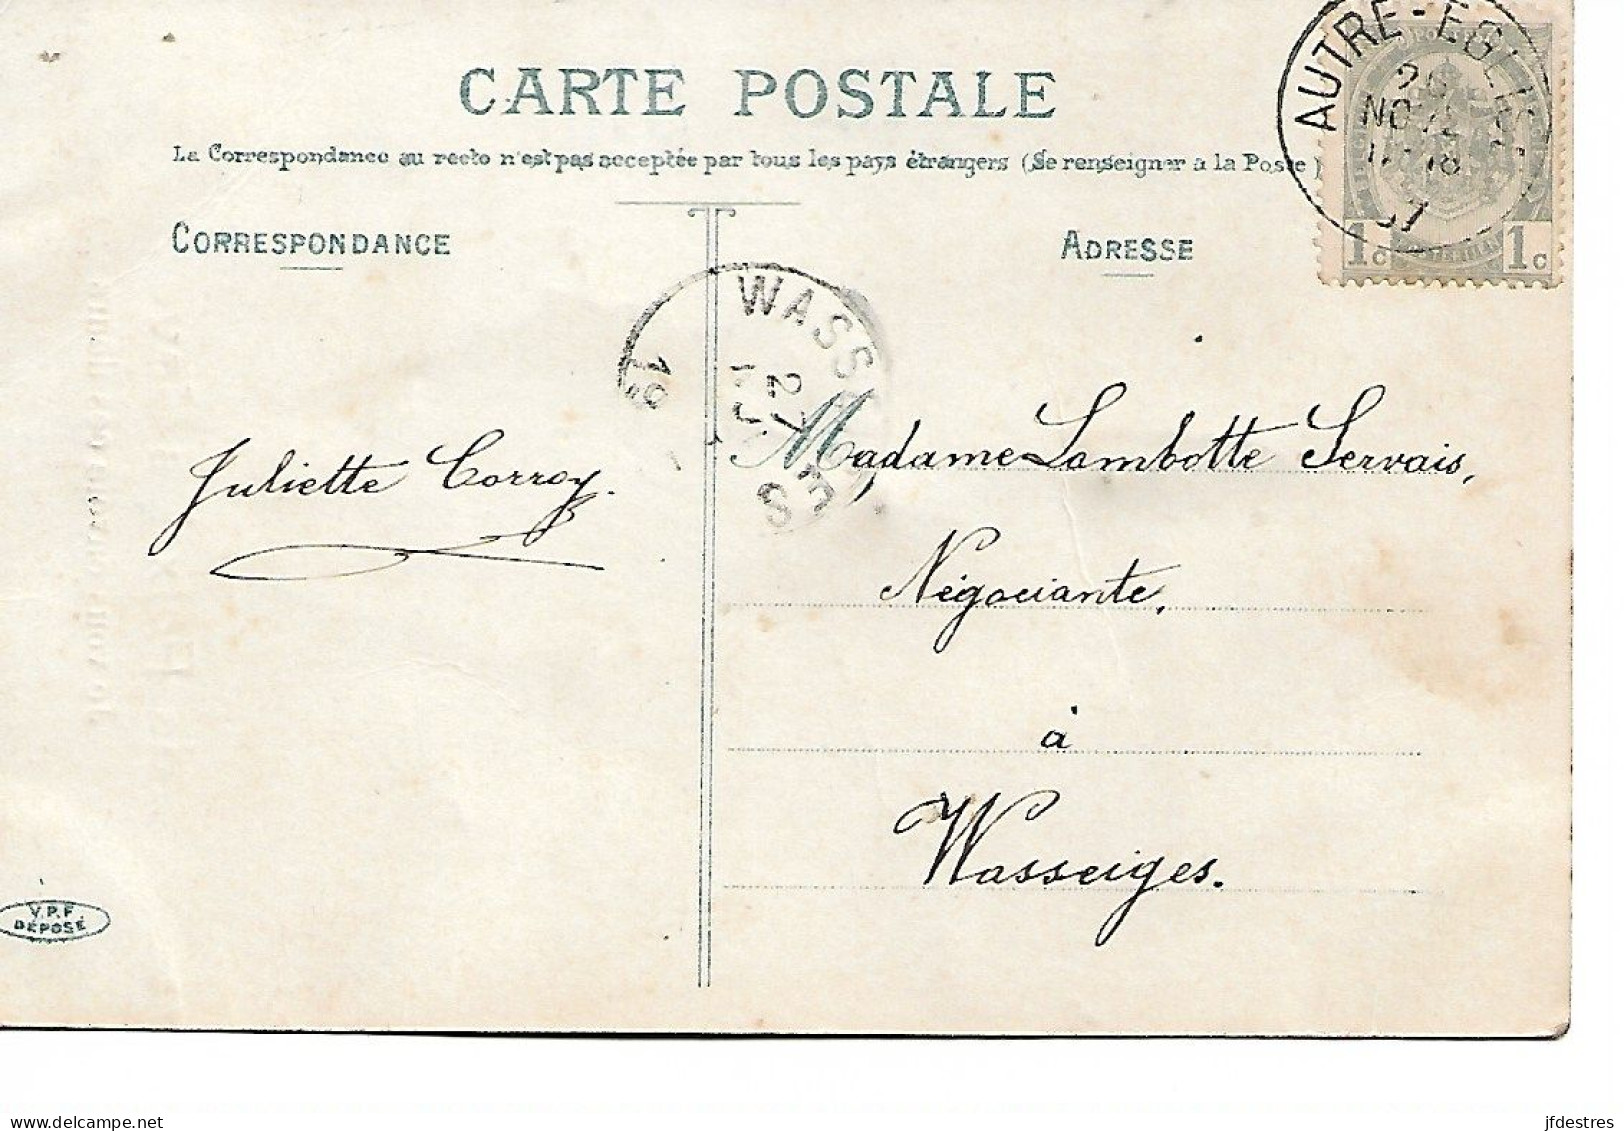 CARTE POSTALE
La Correspondance au recto n'est pas acceptée par tous les pays étrangers (Se renseigner a la Poste)
CORRESPONDANCE
ADRESSE
AUTRE-EGLISE
26
NOV
07
1c 1c
WASSEIGES
27
19
Juliette Corroy.
Madame Lambotte Servais,
Négociante,
à
Wasseiges.
V.P.F.
DÉPOSÉ
delcampe.net
jfdestres